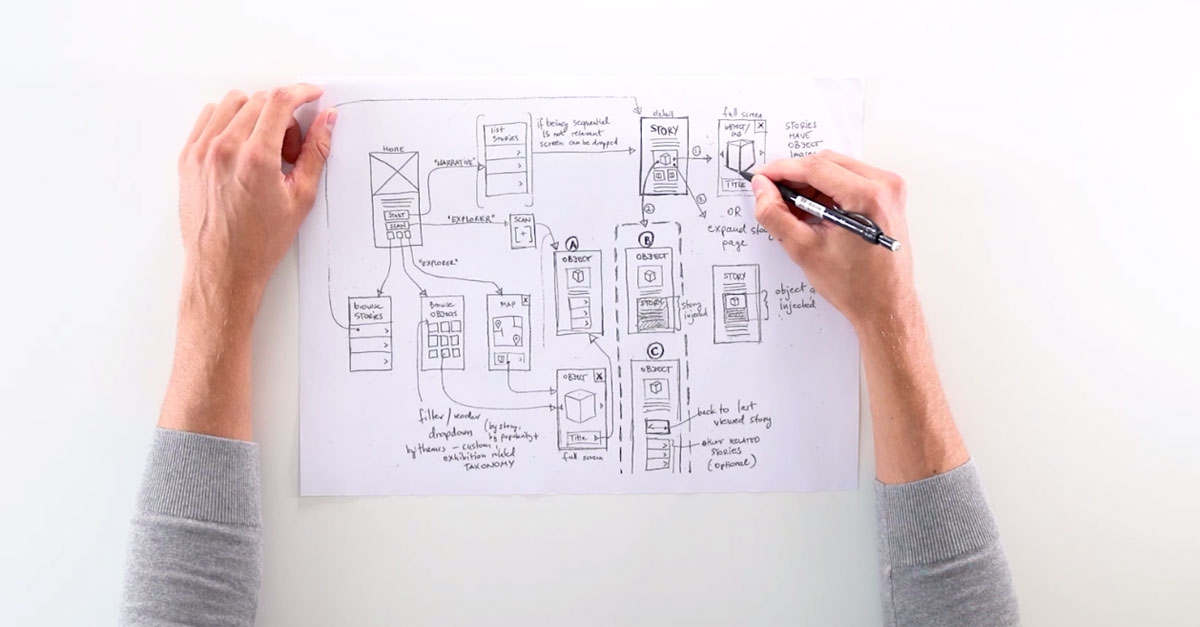 HOME
START
SCAN
"NARRATIVE"
list
STORIES
if being sequential
is not relevant
screen can be dropped
detail
STORY
1
2
2
full screen
Title
STORIES
HAVE
OBJECT
OR
expand story
page
"EXPLORER"
SCAN
"EXPLORER"
browse
STORIES
Browse
OBJECTS
MAP
X
A
OBJECT
B
OBJECT
STORY
story
injected
STORY
object
injected
OBJECT
X
Title
full screen
C
OBJECT
back to last
viewed story
RELATED
STORIES
(optional)
filter/reorder
dropdown
(by story,
by popularity+
by themes – custom,
exhibition related
TAXONOMY